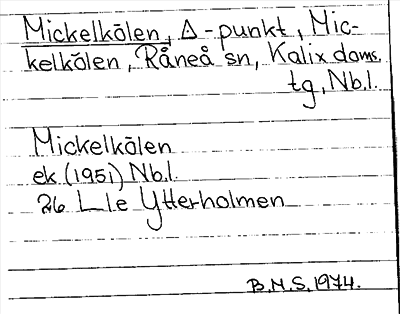 Mickelkölen, Δ-punkt, Mic-
kelkölen, Råneå sn, Kalix doms.
tg, Nb.l.
Mickelkölen
ek. (1951) Nb.l.
26 L le Ytterholmen
B.M.S. 1974.